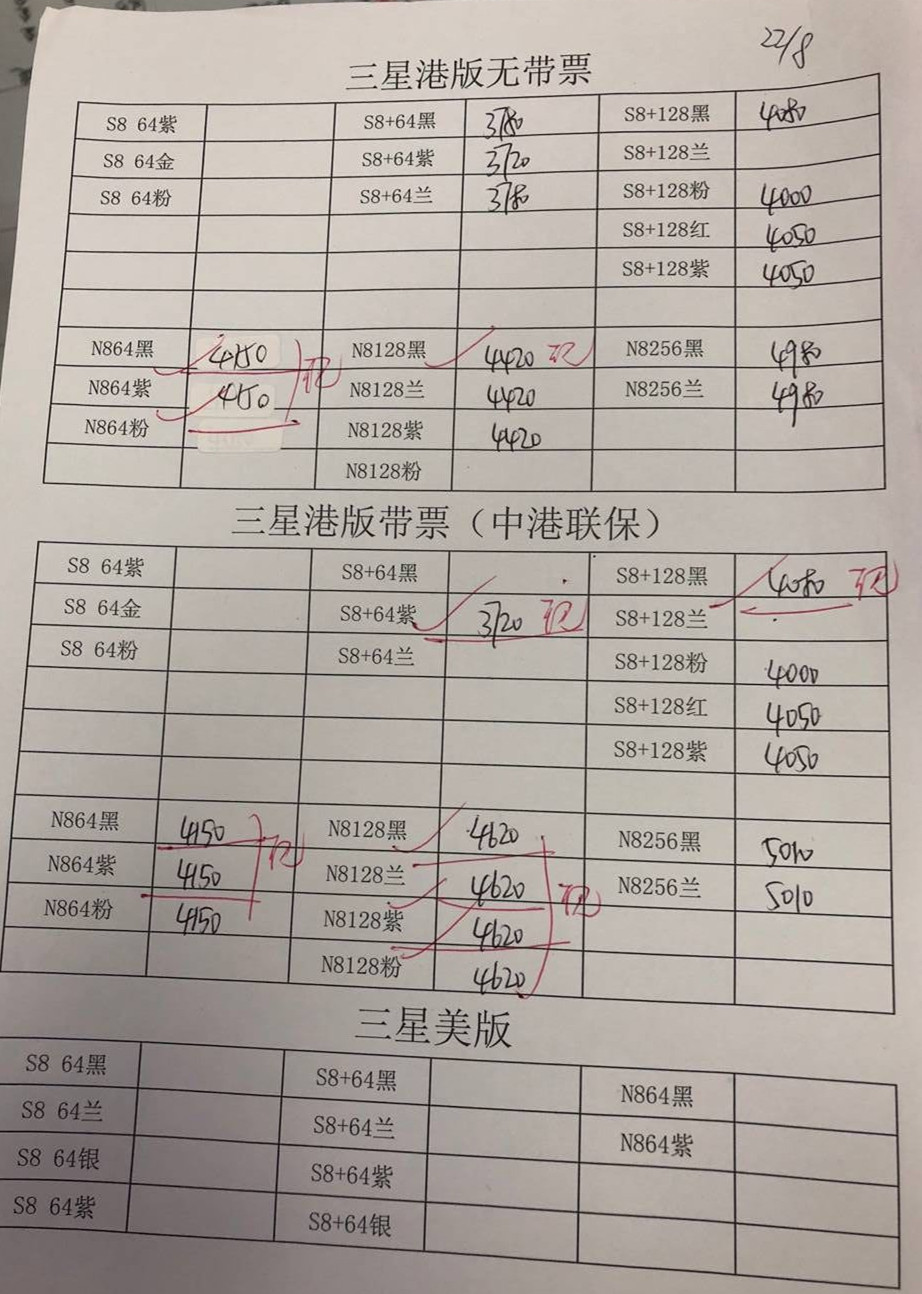 22/8
三星港版无带票
S8 64紫 S8+64黑 3780 S8+128黑 4080
S8 64金 S8+64紫 3720 S8+128兰
S8 64粉 S8+64兰 3780 S8+128粉 4000
S8+128红 4050
S8+128紫 4050
N864黑 4150 N8128黑 4420 现 N8256黑 4980
N864紫 4150 现 N8128兰 4420 N8256兰 4980
N864粉 N8128紫 4420
N8128粉
三星港版带票（中港联保）
S8 64紫 S8+64黑 S8+128黑 4080 现
S8 64金 S8+64紫 3720 现 S8+128兰
S8 64粉 S8+64兰 S8+128粉 4000
S8+128红 4050
S8+128紫 4050
N864黑 4150 N8128黑 4620 N8256黑 5010
N864紫 4150 现 N8128兰 4620 现 N8256兰 5010
N864粉 4150 N8128紫 4620
N8128粉 4620
三星美版
S8 64黑 S8+64黑 N864黑
S8 64兰 S8+64兰 N864紫
S8 64银 S8+64紫
S8 64紫 S8+64银